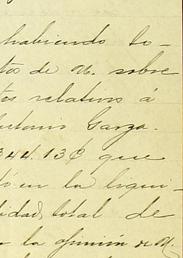 habiendo to-
tos de U. sobre
tos relativos á
Antonio Garza.
344.13¢ que
tó en la liqui-
idad total de
la opinión de U.